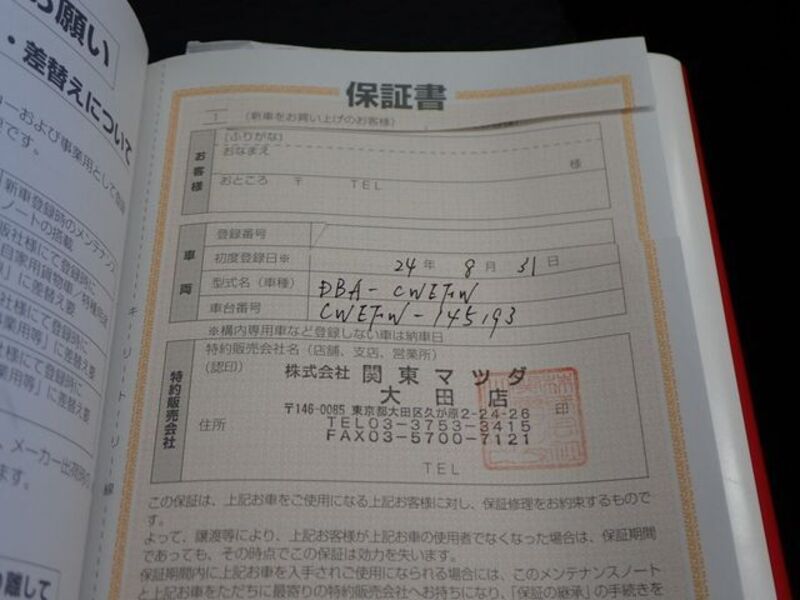 お願い
・差替えについて
保証書
1 (新車をお買い上げのお客様)
お客様
(ふりがな)
おなまえ
様
おところ 〒 TEL
車両
登録番号
初度登録日※ 24年 8月 31日
型式名(車種) DBA-CWEFW
車台番号 CWEFW-145193
※構内専用車など登録しない車は納車日
特約販売会社
特約販売会社名(店舗、支店、営業所)
(認印)
株式会社 関東マツダ
大田店
印
住所
〒146-0085 東京都大田区久が原2-24-26
TEL03-3753-3415
FAX03-5700-7121
TEL
キリトリ線
この保証は、上記お車をご使用になる上記お客様に対し、保証修理をお約束するもので
す。
よって、譲渡等により、上記お客様が上記お車の使用者でなくなった場合は、保証期間
であっても、その時点でこの保証は効力を失います。
保証期間内に上記お車を入手されご使用になられる場合には、このメンテナンスノート
と上記お車をただちに最寄りの特約販売会社へお持ちになり、「保証の継承」の手続きを